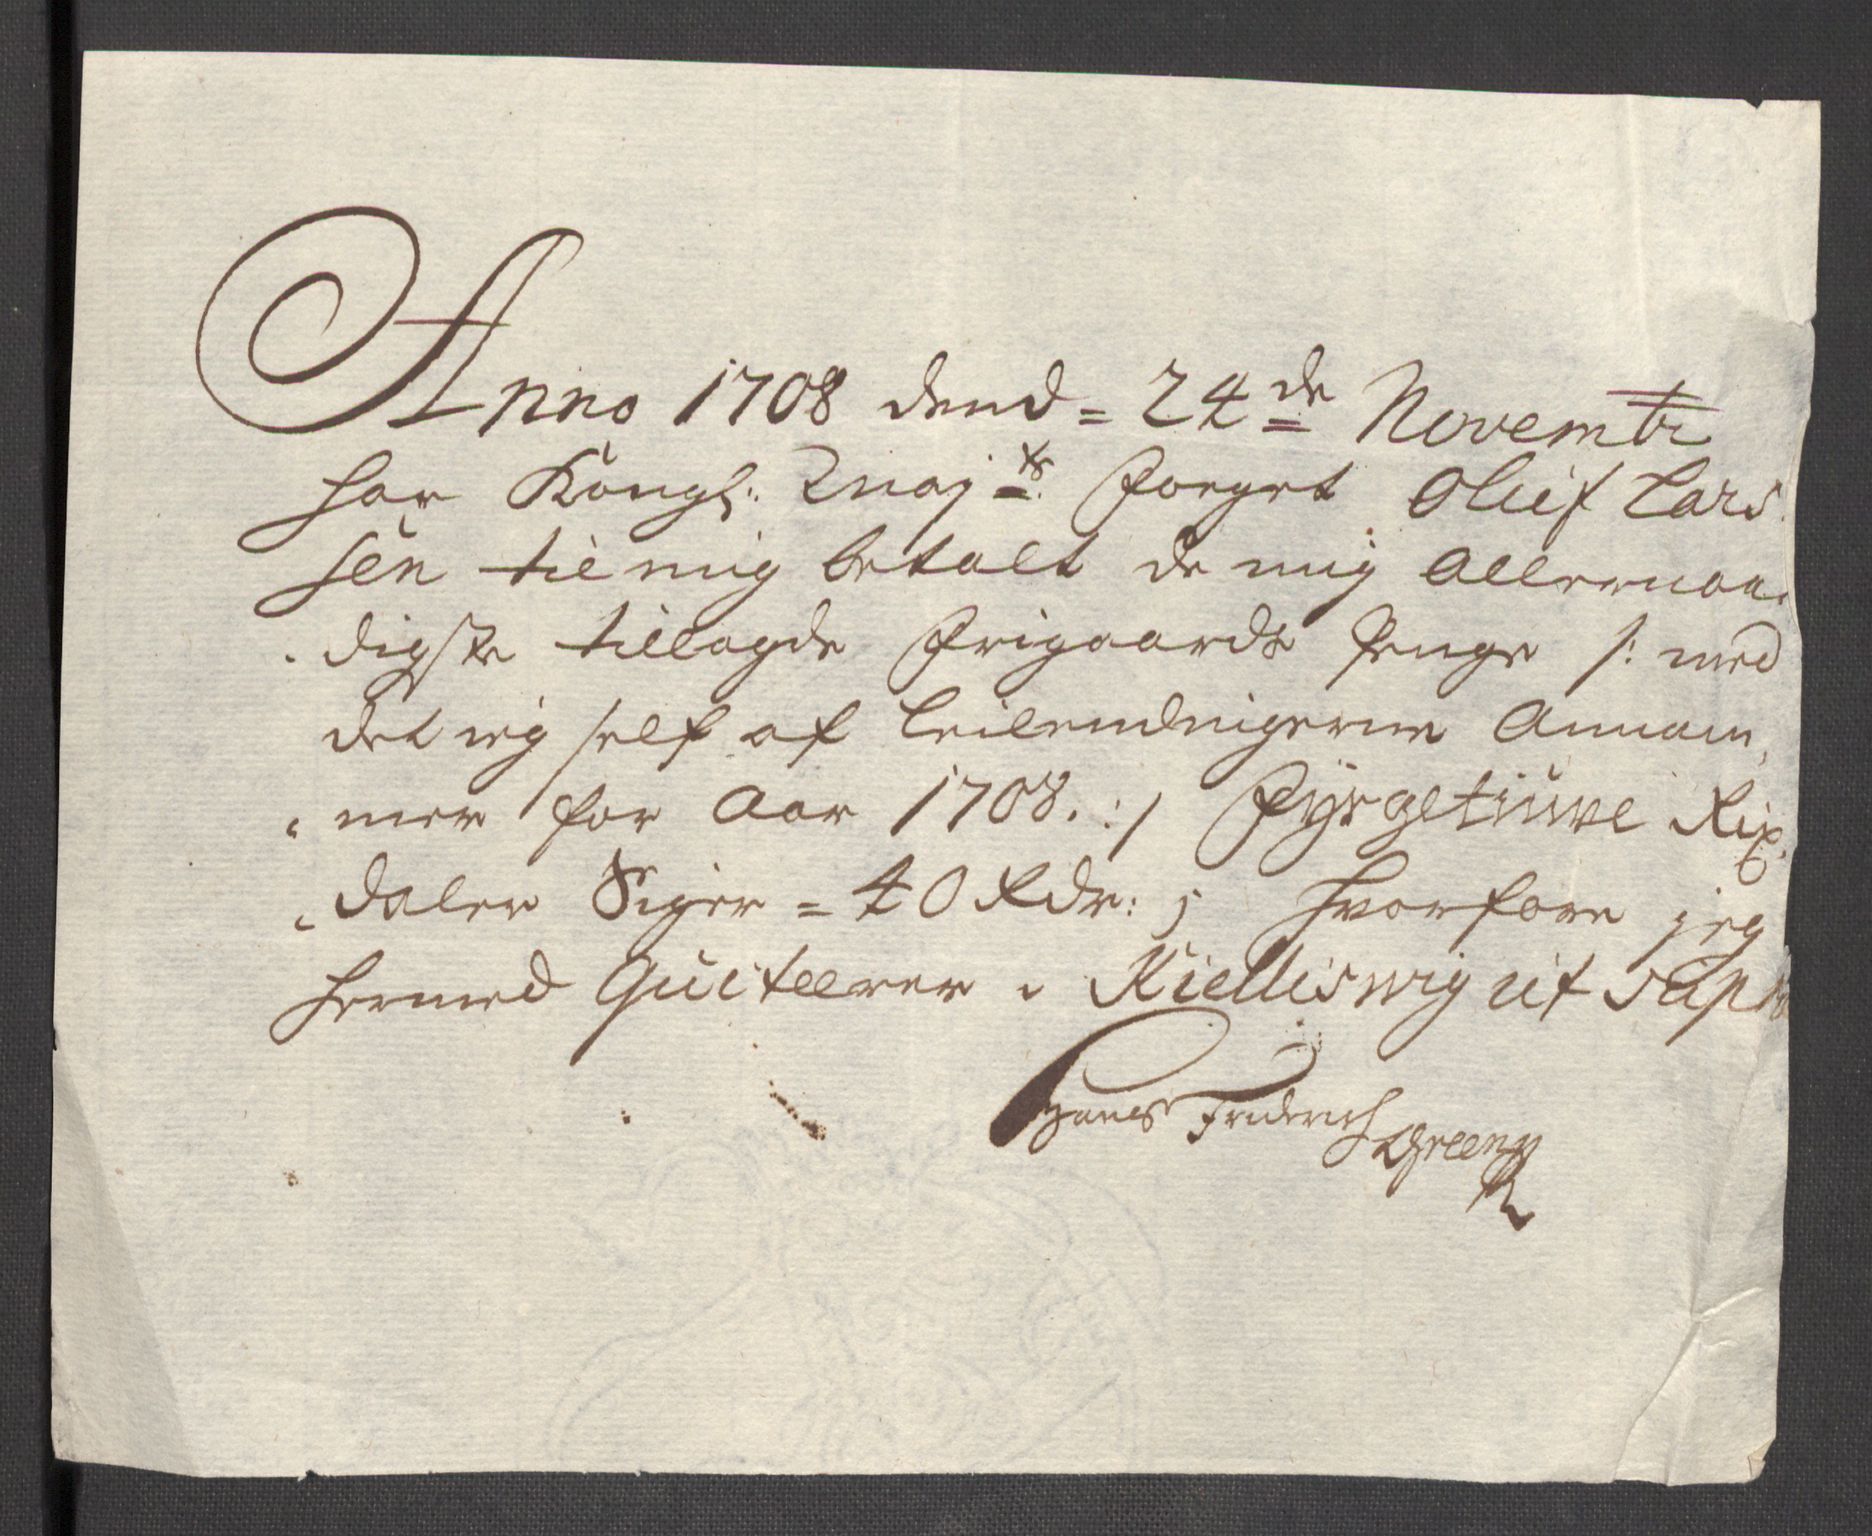 Anno 1708 dend = 24de Novembr
har Kongl: Maj:ts foget Oluf Lars
sen til mig betalt de mig Allernaa
digste tillagde frigaards penge /: med
det ieg self af Leilendingerne Annam
mer for Aar 1708. :/ fyrgetiuve Rix
daler Siger = 40 Rdr: ; hvorfore jeg
hermed Quiteerer. Kielliswig ut supra
Hans Friderich Greeny